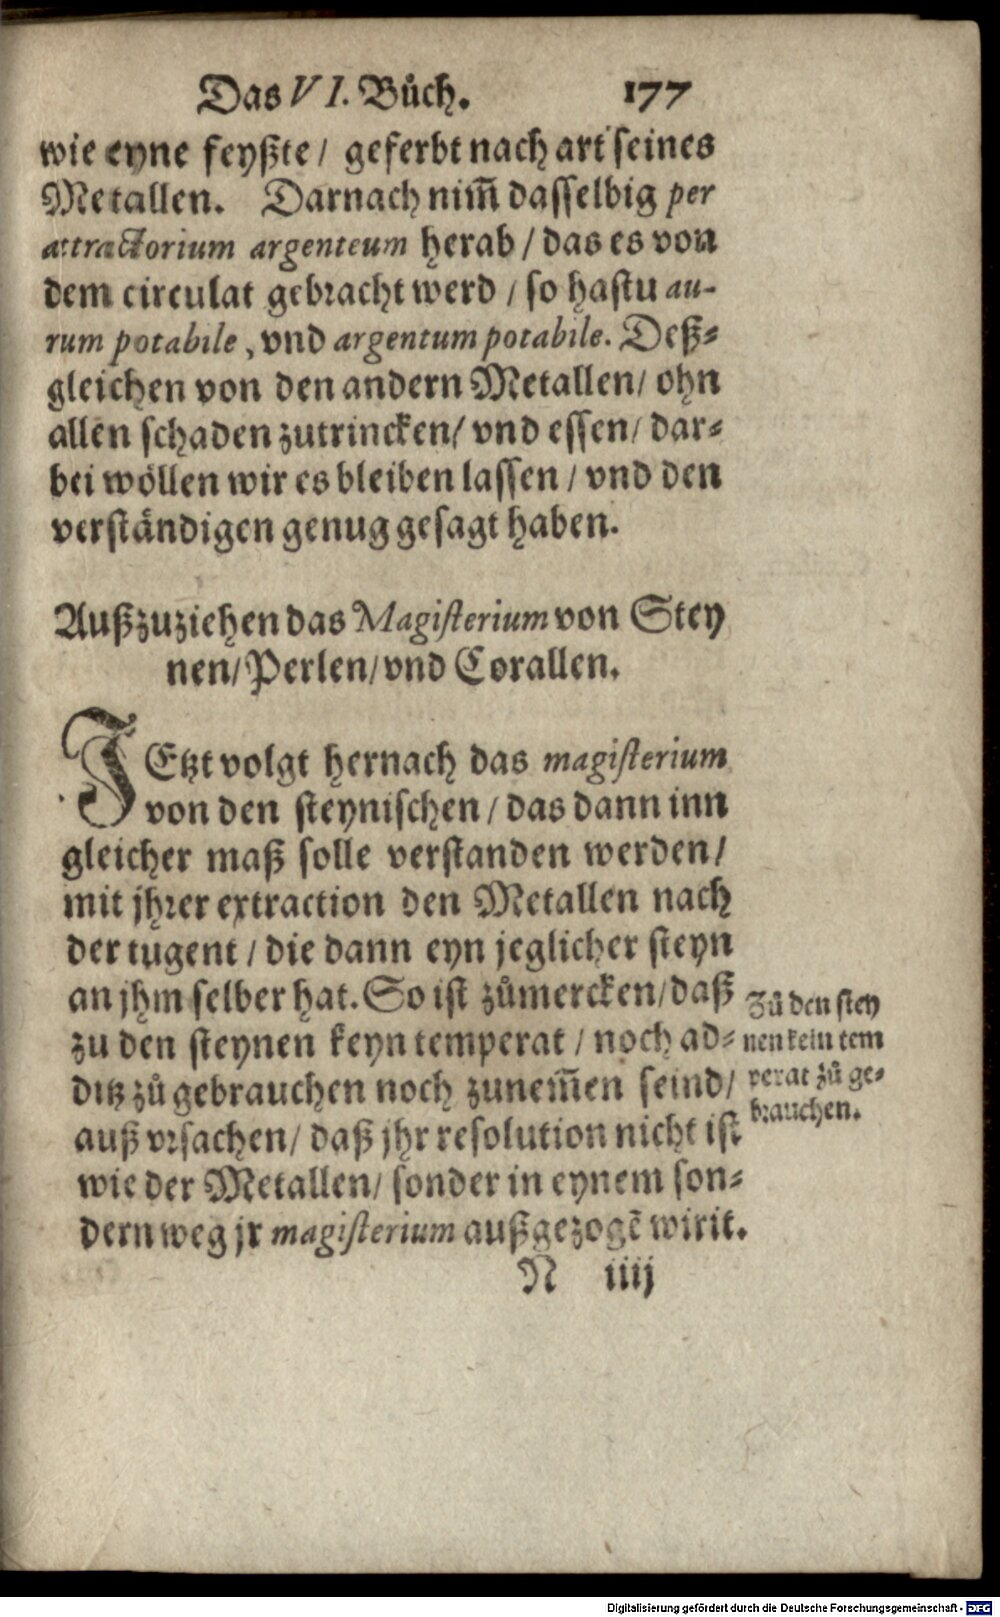 Das VI. Bůch. 177
wie eyne feyßte / geferbt nach art seines
Metallen. Darnach nim̃ dasselbig per
attractorium argenteum herab / das es von
dem circulat gebracht werd / so hastu au-
rum potabile, vnd argentum potabile. Deß-
gleichen von den andern Metallen / ohn
allen schaden zutrincken / vnd essen / dar-
bei wöllen wir es bleiben lassen / vnd den
verständigen genug gesagt haben.
Außzuziehen das Magisterium von Stey
nen / Perlen / vnd Corallen.
JEtzt volgt hernach das magisterium
von den steynischen / das dann inn
gleicher maß solle verstanden werden /
mit jhrer extraction den Metallen nach
der tugent / die dann eyn jeglicher steyn
an jhm selber hat. So ist zůmercken / daß
zu den steynen keyn temperat / noch ad-
ditz zů gebrauchen noch zunem̃en seind /
auß vrsachen / daß jhr resolution nicht ist
wie der Metallen / sonder in eynem son-
dern weg jr magisterium außgezogē wirit.
Zů den stey
nen kein tem
perat zů ge-
brauchen.
N iiij
Digitalisierung gefördert durch die Deutsche Forschungsgemeinschaft - DFG